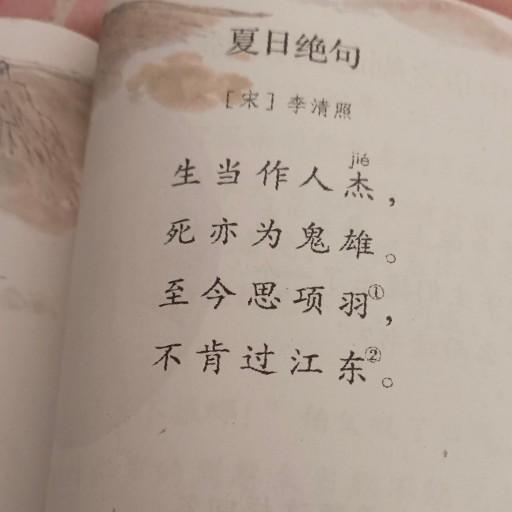 夏日绝句
［宋］李清照
jié
生当作人杰，
死亦为鬼雄。
至今思项羽①，
不肯过江东②。